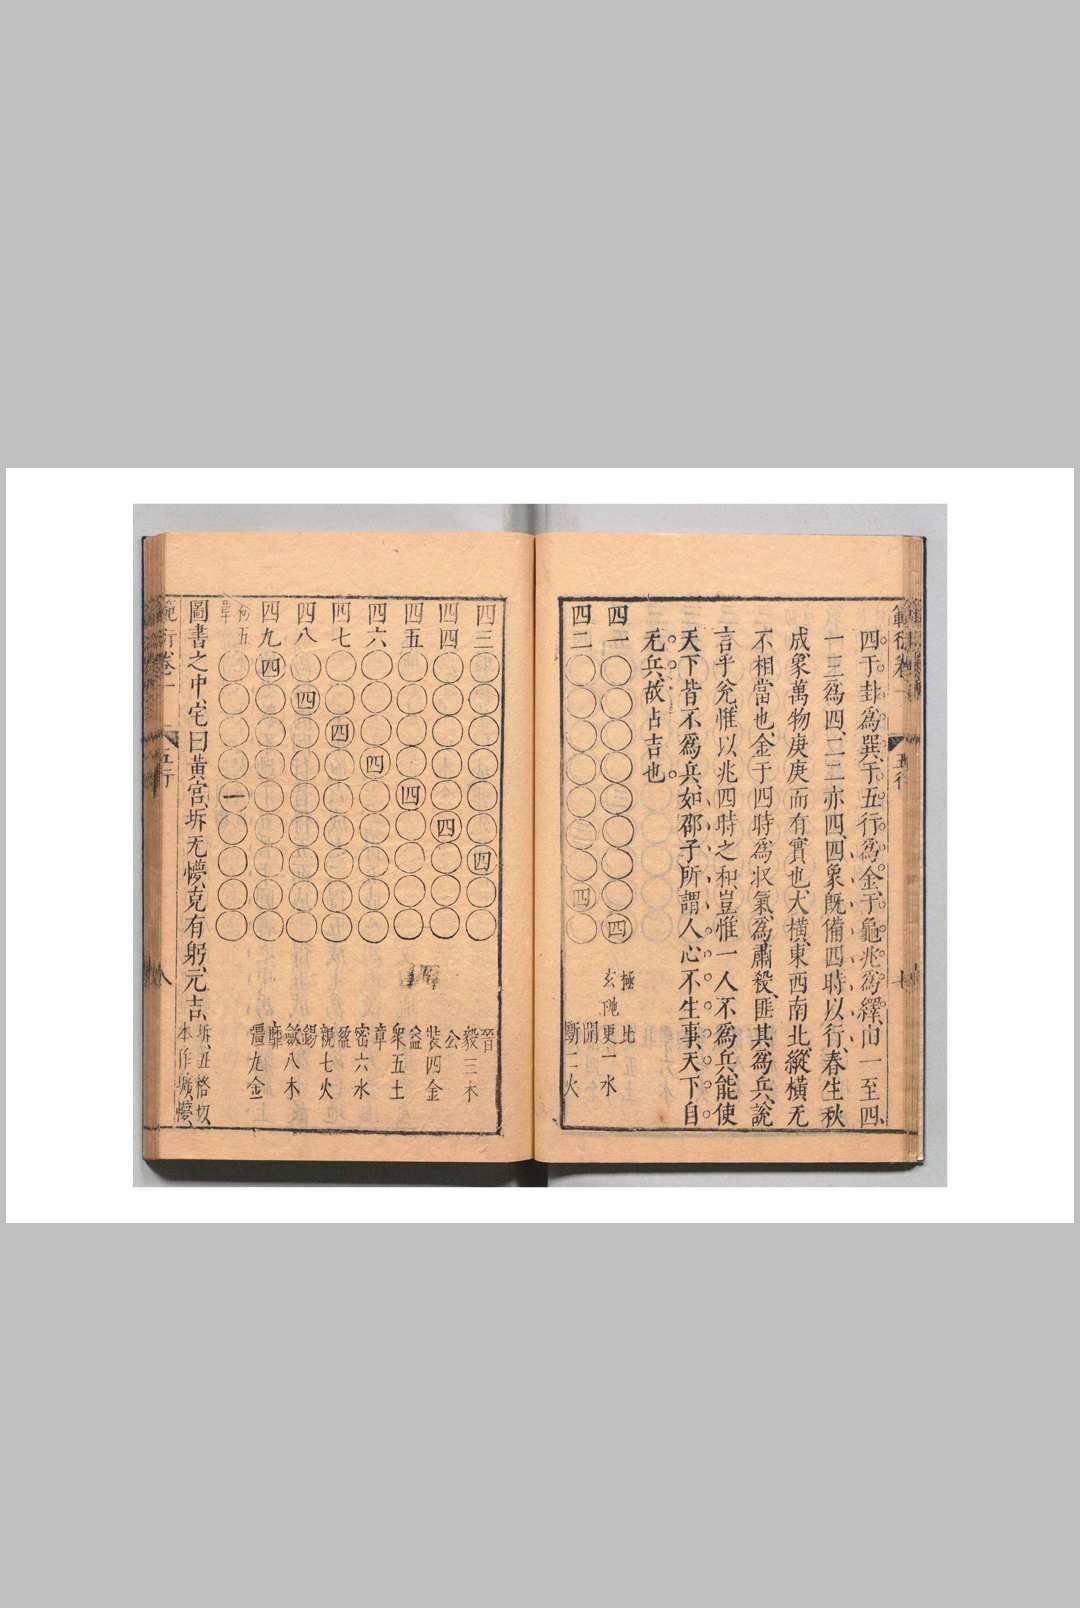 四于卦爲巽、于五行爲金、于龜兆爲繹、由一至四、
一三爲四、二二亦四、四象既備、四時以行、春生秋
成、衆萬物庚庚而有實也、大橫、東西南北、縱橫无
不相當也、金于四時爲收、氣爲肅殺、匪其爲兵、說
言乎兊、惟以兆四時之和、豈惟一人不爲兵、能使
天下皆不爲兵、如邵子所謂人心不生事、天下自
无兵、故占吉也
四一
四
極 比
玄
更一水
四二
四
開
斷二火
四三
四
晉
毅三木
四四
四
公
裝四金
四五
四
益
衆五土
四六
四
章
密六水
四七
四
親七火
四八
四
錫
斂八木
四九
四
靡
殭九金
五
一
圖書之中、宅曰黃宮、坼无㦬、克有躬、元吉、
坼、丑格切
本作㙤㦬、
範衍卷一
五行
八